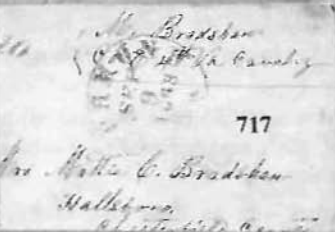 Mr Bradshaw
Co E 4th Va Cavalry
717
Mrs Mattie C. Bradshaw
Hallsboro,
Chesterfield County